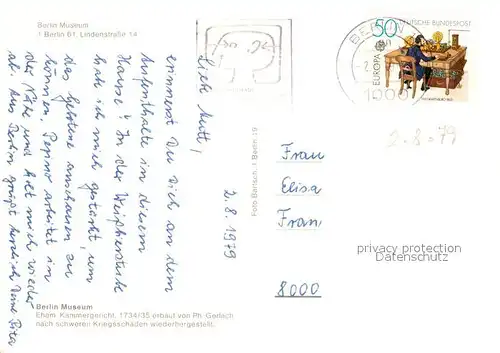 Berlin Museum
1 Berlin 61, Lindenstraße 14
50
DEUTSCHE BUNDESPOST
EUROPA
BERLIN
1000
2.8.79
2.8.1979
Liebe Mutti,
erinnerst Du Dich an dem
Aufenthalte in diesem
Hause? In der Weißbierstube
hab' ich mich gestärkt, um
das Gebotene anschauen zu
können. Pepino arbeitet in
der Nähe und holt mich wieder
ab. Aus Berlin grüßt herzlich Deine
Foto Bartsch, 1 Berlin 19
Frau
Elisa
Fran
8000
privacy protection
Datenschutz
Berlin Museum
Ehem. Kammergericht, 1734/35 erbaut von Ph. Gerlach
nach schweren Kriegsschäden wiederhergestellt.